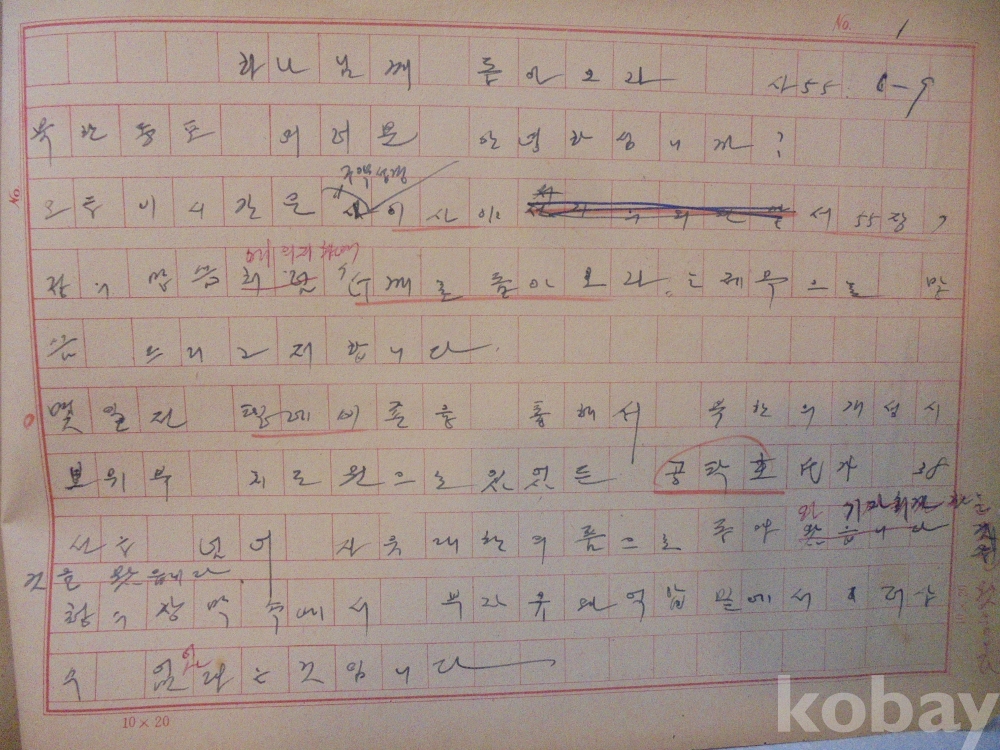 No. 1
하나님께 돌아오라 사 55:6-9
북한동포 여러분 안녕하십니까?
구약성경
오후 이 시간은 이사야 서 55장 7
절의 말씀
께로 돌아오라 는 제목으로 말
씀 드리고저 합니다.
몇일전 텔레비죤을 통해서 북한의 개성시
보위부 지도원으로 있었든 공탁호 씨가 38
선을 넘어 자유대한의 품으로 기자회견
것을 봤읍니다.
장막 속에서 부자유와 억압 밑에서 더 이상
수 없었다는 것입니다
No.
10×20
kobay